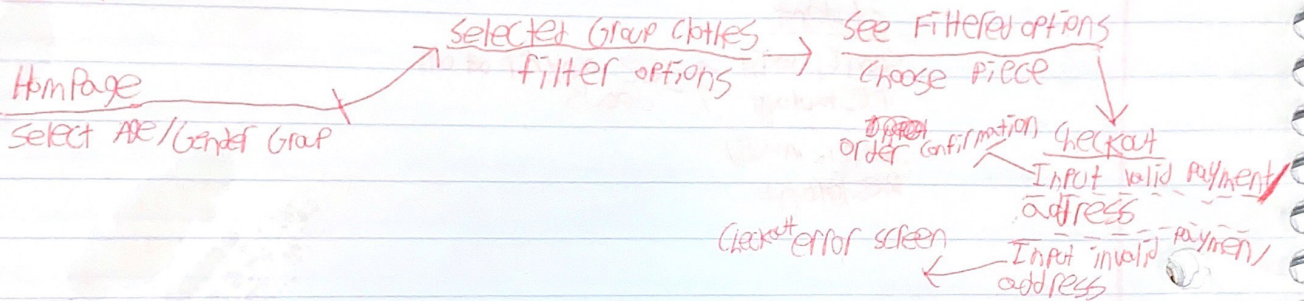 HomPage
Select Age/Gender Group
Selected Group Clothes
filter options
See Filtered options
Choose piece
Checkout
Input valid payment/
address
order confirmation
Input invalid payment/
address
Checkout error screen